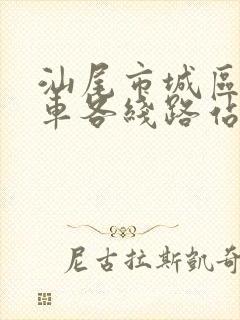 汕尾市城區
車各綫路佔
尼古拉斯凱奇